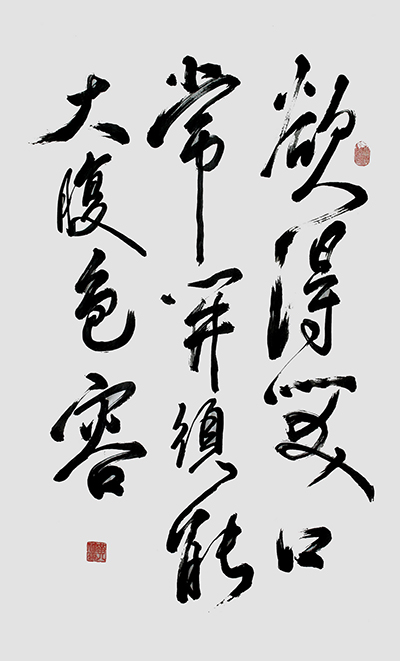 欲得笑口
常開須能
大腹包容